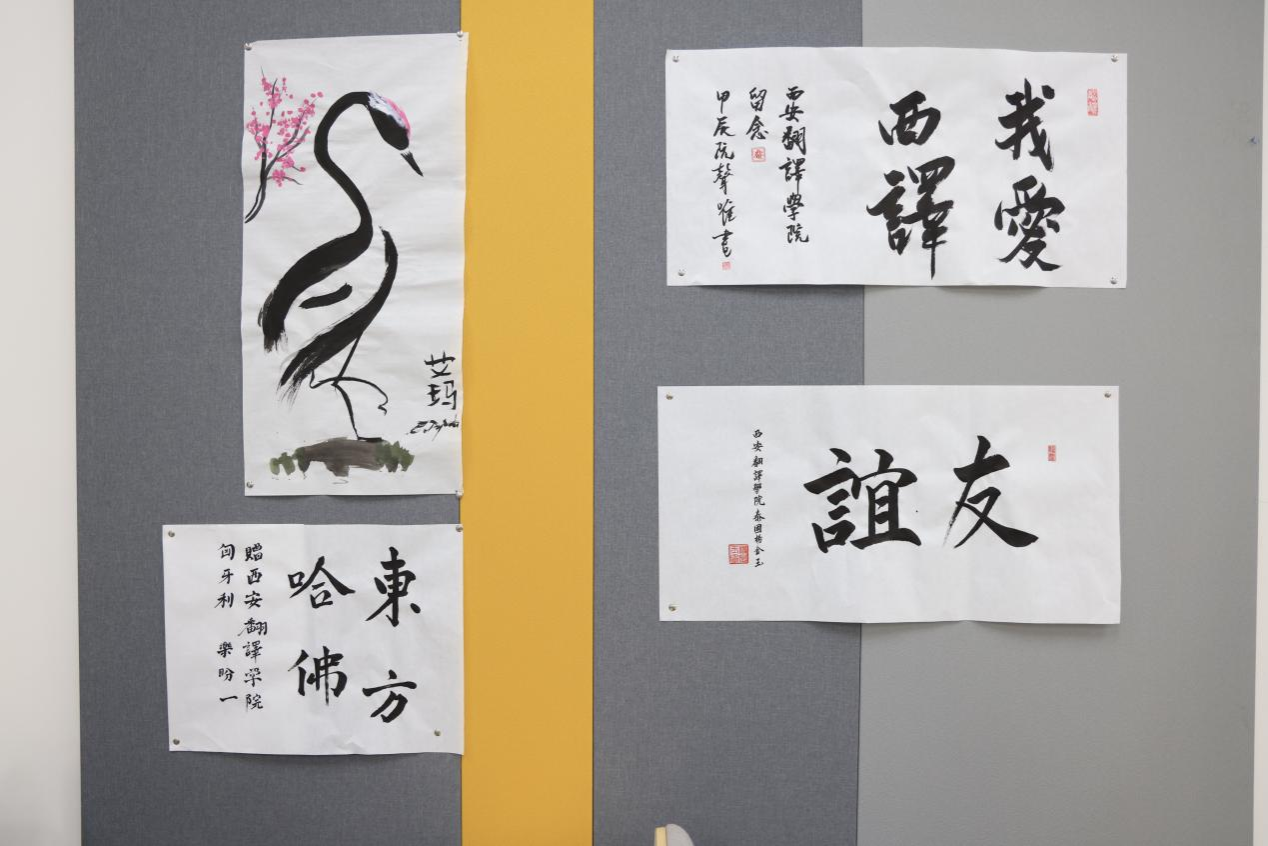 我愛
西譯
西安翻譯學院
留念
甲辰阮聲唯書
友誼
西安翻譯學院泰國楊金玉
艾玛
東方
哈佛
贈西安翻譯學院
匈牙利 樂盼一